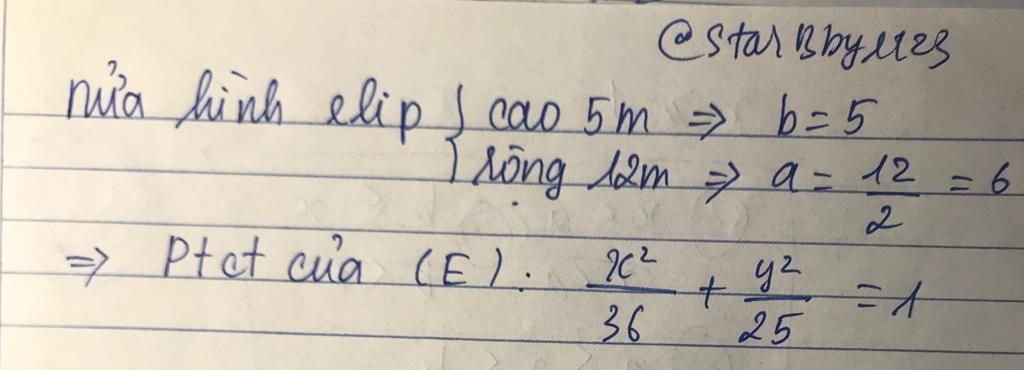 @StarBbyu23
nửa hình elip { cao 5m => b = 5
rộng 12m => a = 12/2 = 6
=> Ptct của (E): x²/36 + y²/25 = 1